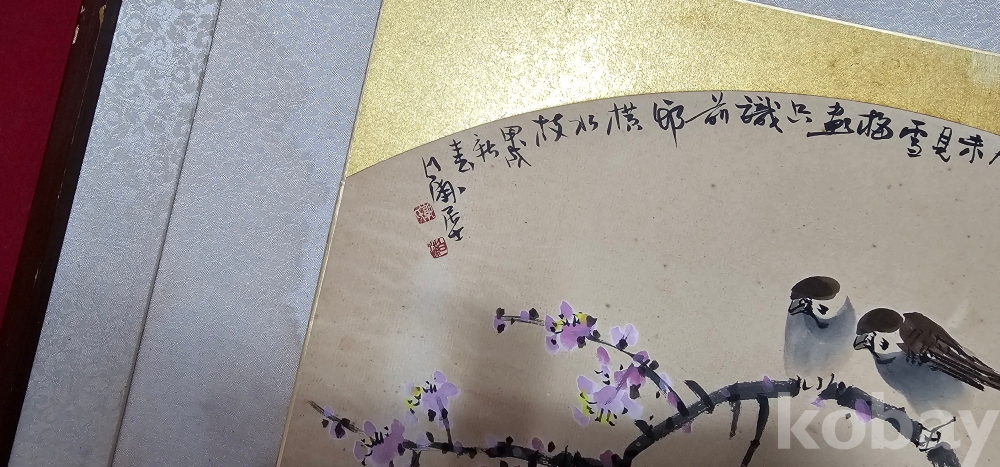 未見雪梅畫只識前邨橫水枝
甲戌
新
春
蘭居士
kobay